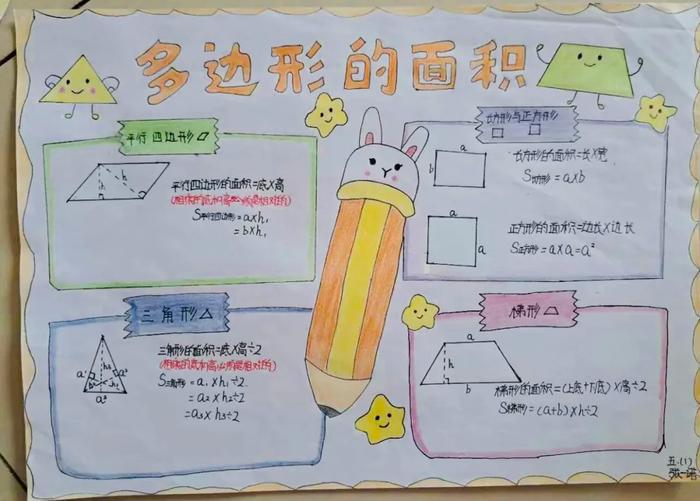 多边形的面积
平行四边形
h
h
平行四边形的面积=底×高
(相乘的底和高必须是相对的)
S平行四边形=a×h₁
=b×h₁
长方形与正方形
a
b
长方形的面积=长×宽
S长方形=a×b
a
a
正方形的面积=边长×边长
S正方形=a×a=a²
三角形
三角形的面积=底×高÷2
(相乘的底和高必须是相对的)
S三角形=a₁×h₁÷2
=a₂×h₂÷2
=a₃×h₃÷2
梯形
a
h
b
梯形的面积=(上底+下底)×高÷2
S梯形=(a+b)×h÷2
五.(1)